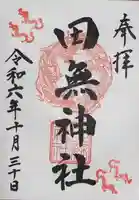 奉拝
田無神社
令和六年十月三十日